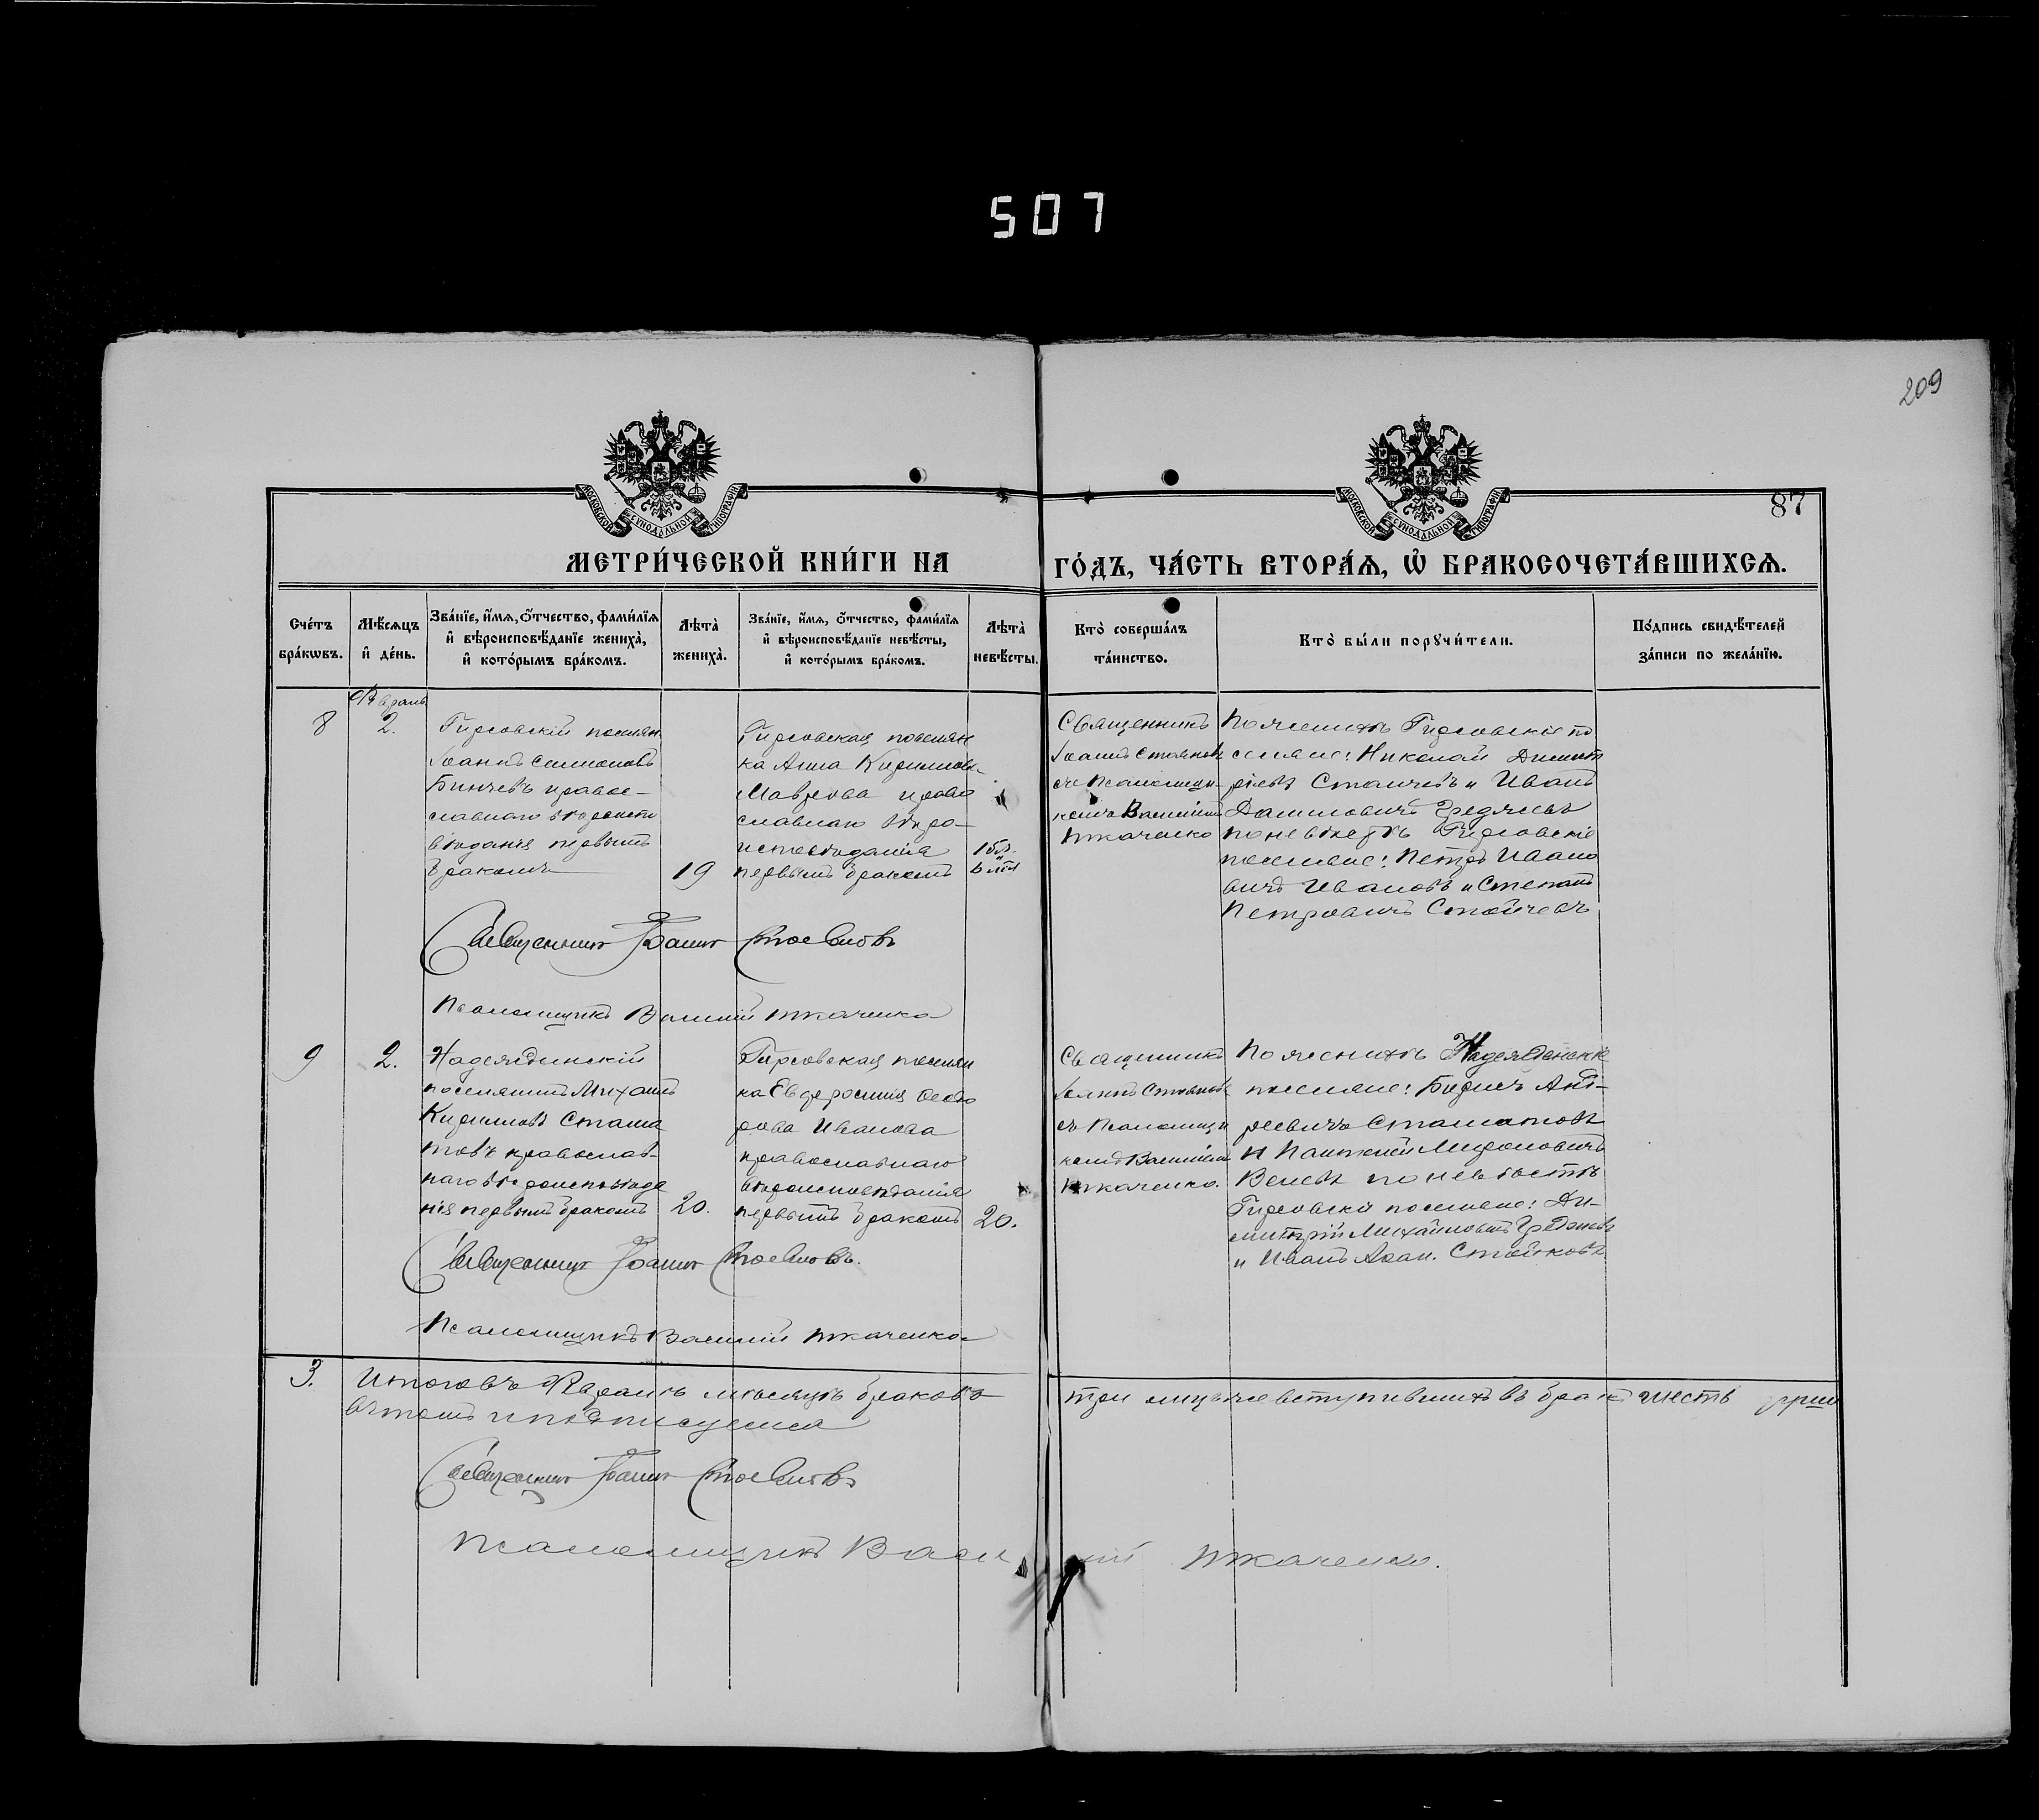 507
209
87
МОСКОВСКОЙ СѴНОДАЛЬНОЙ ТИПОГРАФІИ
МОСКОВСКОЙ СѴНОДАЛЬНОЙ ТИПОГРАФІИ
МЕТРИ́ЧЕСКОЙ КНИ́ГИ НА ГО́ДЪ, ЧА́СТЬ ВТОРА́Ѧ, Ѡ҆ БРАКОСОЧЕТА́ВШИХСѦ.
Сче́тъ бра́кѡвъ.
Мѣ́сѧцъ и҆ де́нь.
Зва́нїе, и҆́мѧ, ѻ҆́тчество, фами́лїѧ
и҆ вѣроисповѣ́данїе жениха̀,
и҆ кото́рымъ бра́комъ.
Лѣта̀ жениха̀.
Зва́нїе, и҆́мѧ, ѻ҆́тчество, фами́лїѧ
и҆ вѣроисповѣ́данїе невѣ́сты,
и҆ кото́рымъ бра́комъ.
Лѣта̀ невѣ́сты.
Кто̀ соверша́лъ
та́инство.
Кто̀ бы́ли порꙋчи́тели.
По́дпись свидѣ́телей
за́писи по жела́нїю.
8
2.
Гирсовскій поселян
Іоаннъ Симоновъ
Бинчевъ правос-
славнаго вѣроиспо
вѣданія первымъ
бракомъ
19
Гирсовская поселян
ка Анна Кирилова
Маврова право
славнаго вѣро-
исповѣданія
первымъ бракомъ
Священникъ
Іоаннъ Стоянов
съ Псаломщи
комъ Василіемъ
Ткаченко
По женихѣ Гирсовскіе по
селяне: Николай Димит
ріевъ Станчевъ и Иванъ
Даниловичъ
по невѣстѣ Гирсовскіе
поселяне: Петръ Ивано
вичъ Ивановъ и Степанъ
Петровичъ Стойчевъ
Священникъ Іоаннъ Стояновъ
Псаломщикъ Василій Ткаченко
9
2.
Надеждинскій
поселянинъ Михаилъ
Кириловъ Стама
товъ православ-
наго вѣроисповѣда
нія первымъ бракомъ
20.
Гирсовская поселян
ка Евфросинія Ѳеодо
рова Иванова
православнаго
вѣроисповѣданія
первымъ бракомъ
20.
Священникъ
Іоаннъ Стоянов
съ Псаломщи
комъ Василіемъ
Ткаченко.
По женихѣ Надежденскіе
поселяне: Борисъ Анд-
реевичъ Стаматовъ
и Пантелей Мироновичъ
Велевъ по невѣстѣ
Гирсовскіе поселяне: Ди-
митрій Михайловичъ
и Иванъ Аѳан. Стойковъ
Священникъ Іоаннъ Стояновъ.
Псаломщикъ Василій Ткаченко
3.
Итого въ Февралѣ мѣсяцѣ браковъ три лицъ же вступившихъ въ бракъ шесть
въ томъ и подписуемся
Священникъ Іоаннъ Стояновъ
Псаломщикъ Василій Ткаченко.